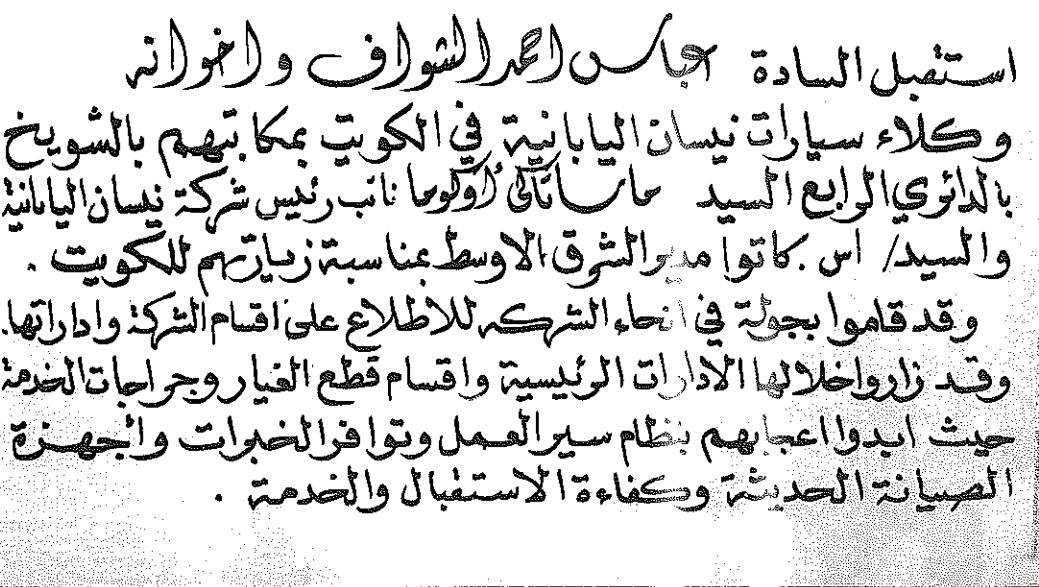 استقبل السادة عباس احمد الشواف واخوانه
وكلاء سيارات نيسان اليابانية في الكويت بمكاتبهم بالشويخ
بالدائري الرابع السيد ماساتاكي أوكوما نائب رئيس شركة نيسان اليابانية
والسيد/ اس . كاتوا مدير الشرق الاوسط بمناسبة زيارتهم للكويت .
وقد قاموا بجولة في انحاء الشركه للاطلاع على اقسام الشركة واداراتها.
وقد زاروا خلالها الادارات الرئيسية واقسام قطع الغيار وجراجات الخدمة
حيث ابدوا اعجابهم بنظام سير العمل وتوافر الخبرات وأجهزة
الصيانة الحديثة وكفاءة الاستقبال والخدمة .